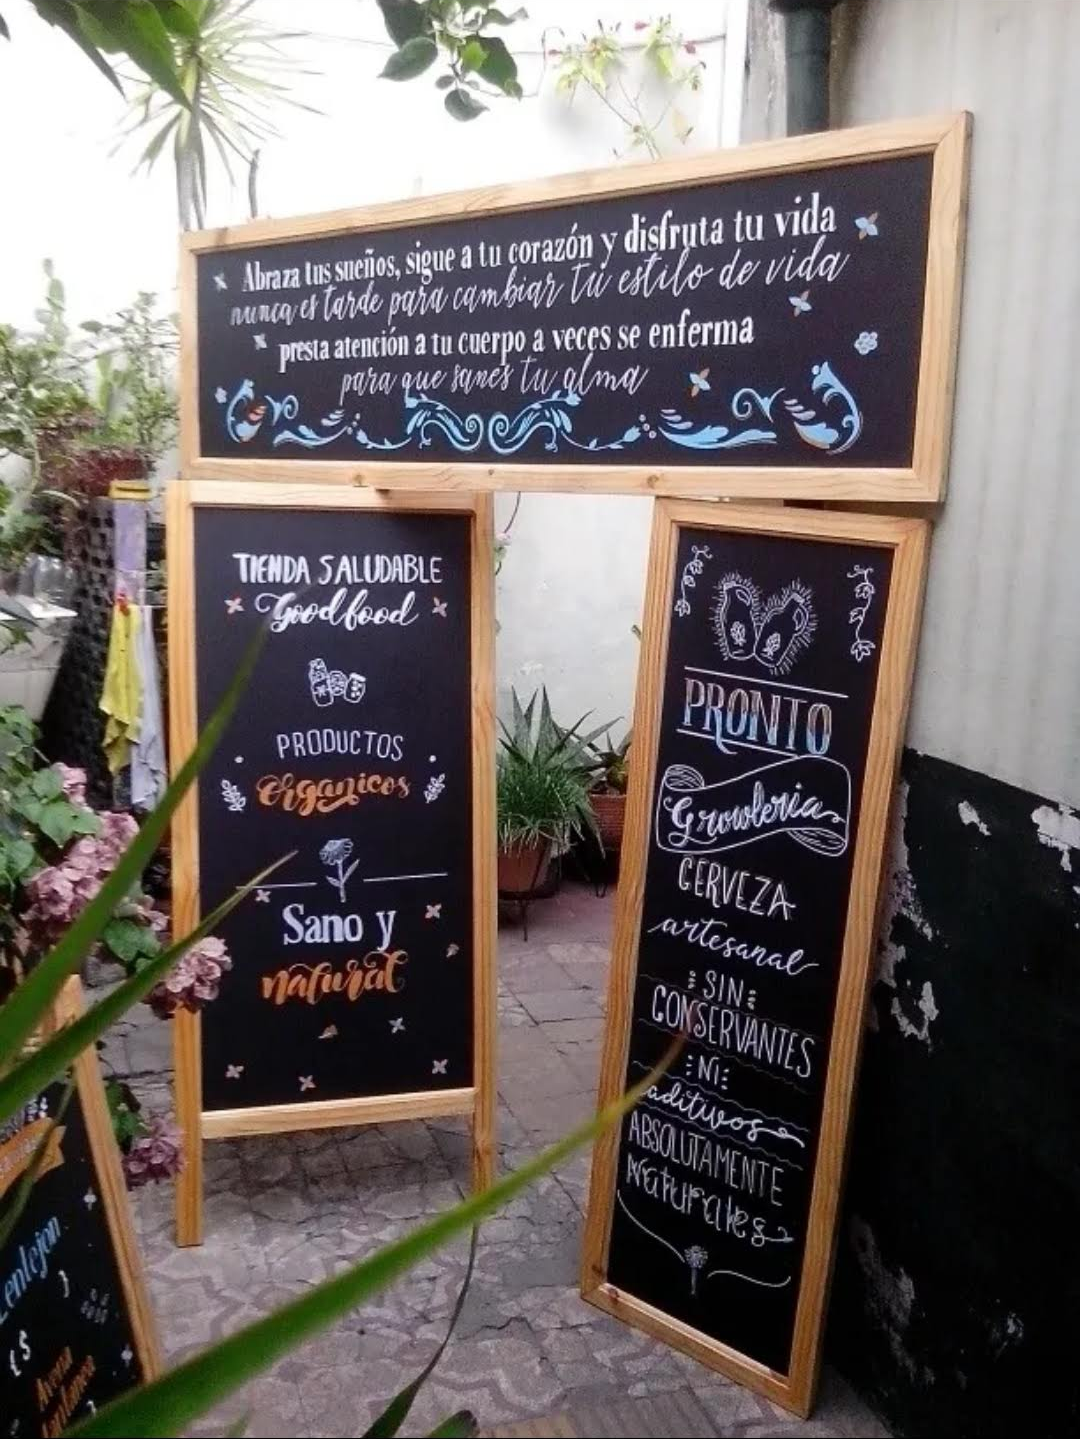 Abraza tus sueños, sigue a tu corazón y disfruta tu vida
nunca es tarde para cambiar tu estilo de vida
presta atención a tu cuerpo a veces se enferma
para que sanes tu alma
TIENDA SALUDABLE
Goodfood
PRODUCTOS
organicos
Sano y
natural
PRONTO
Growleria
CERVEZA
artesanal
SIN
CONSERVANTES
NI
aditivos
ABSOLUTAMENTE
NATURALES
Lentejon
Avena